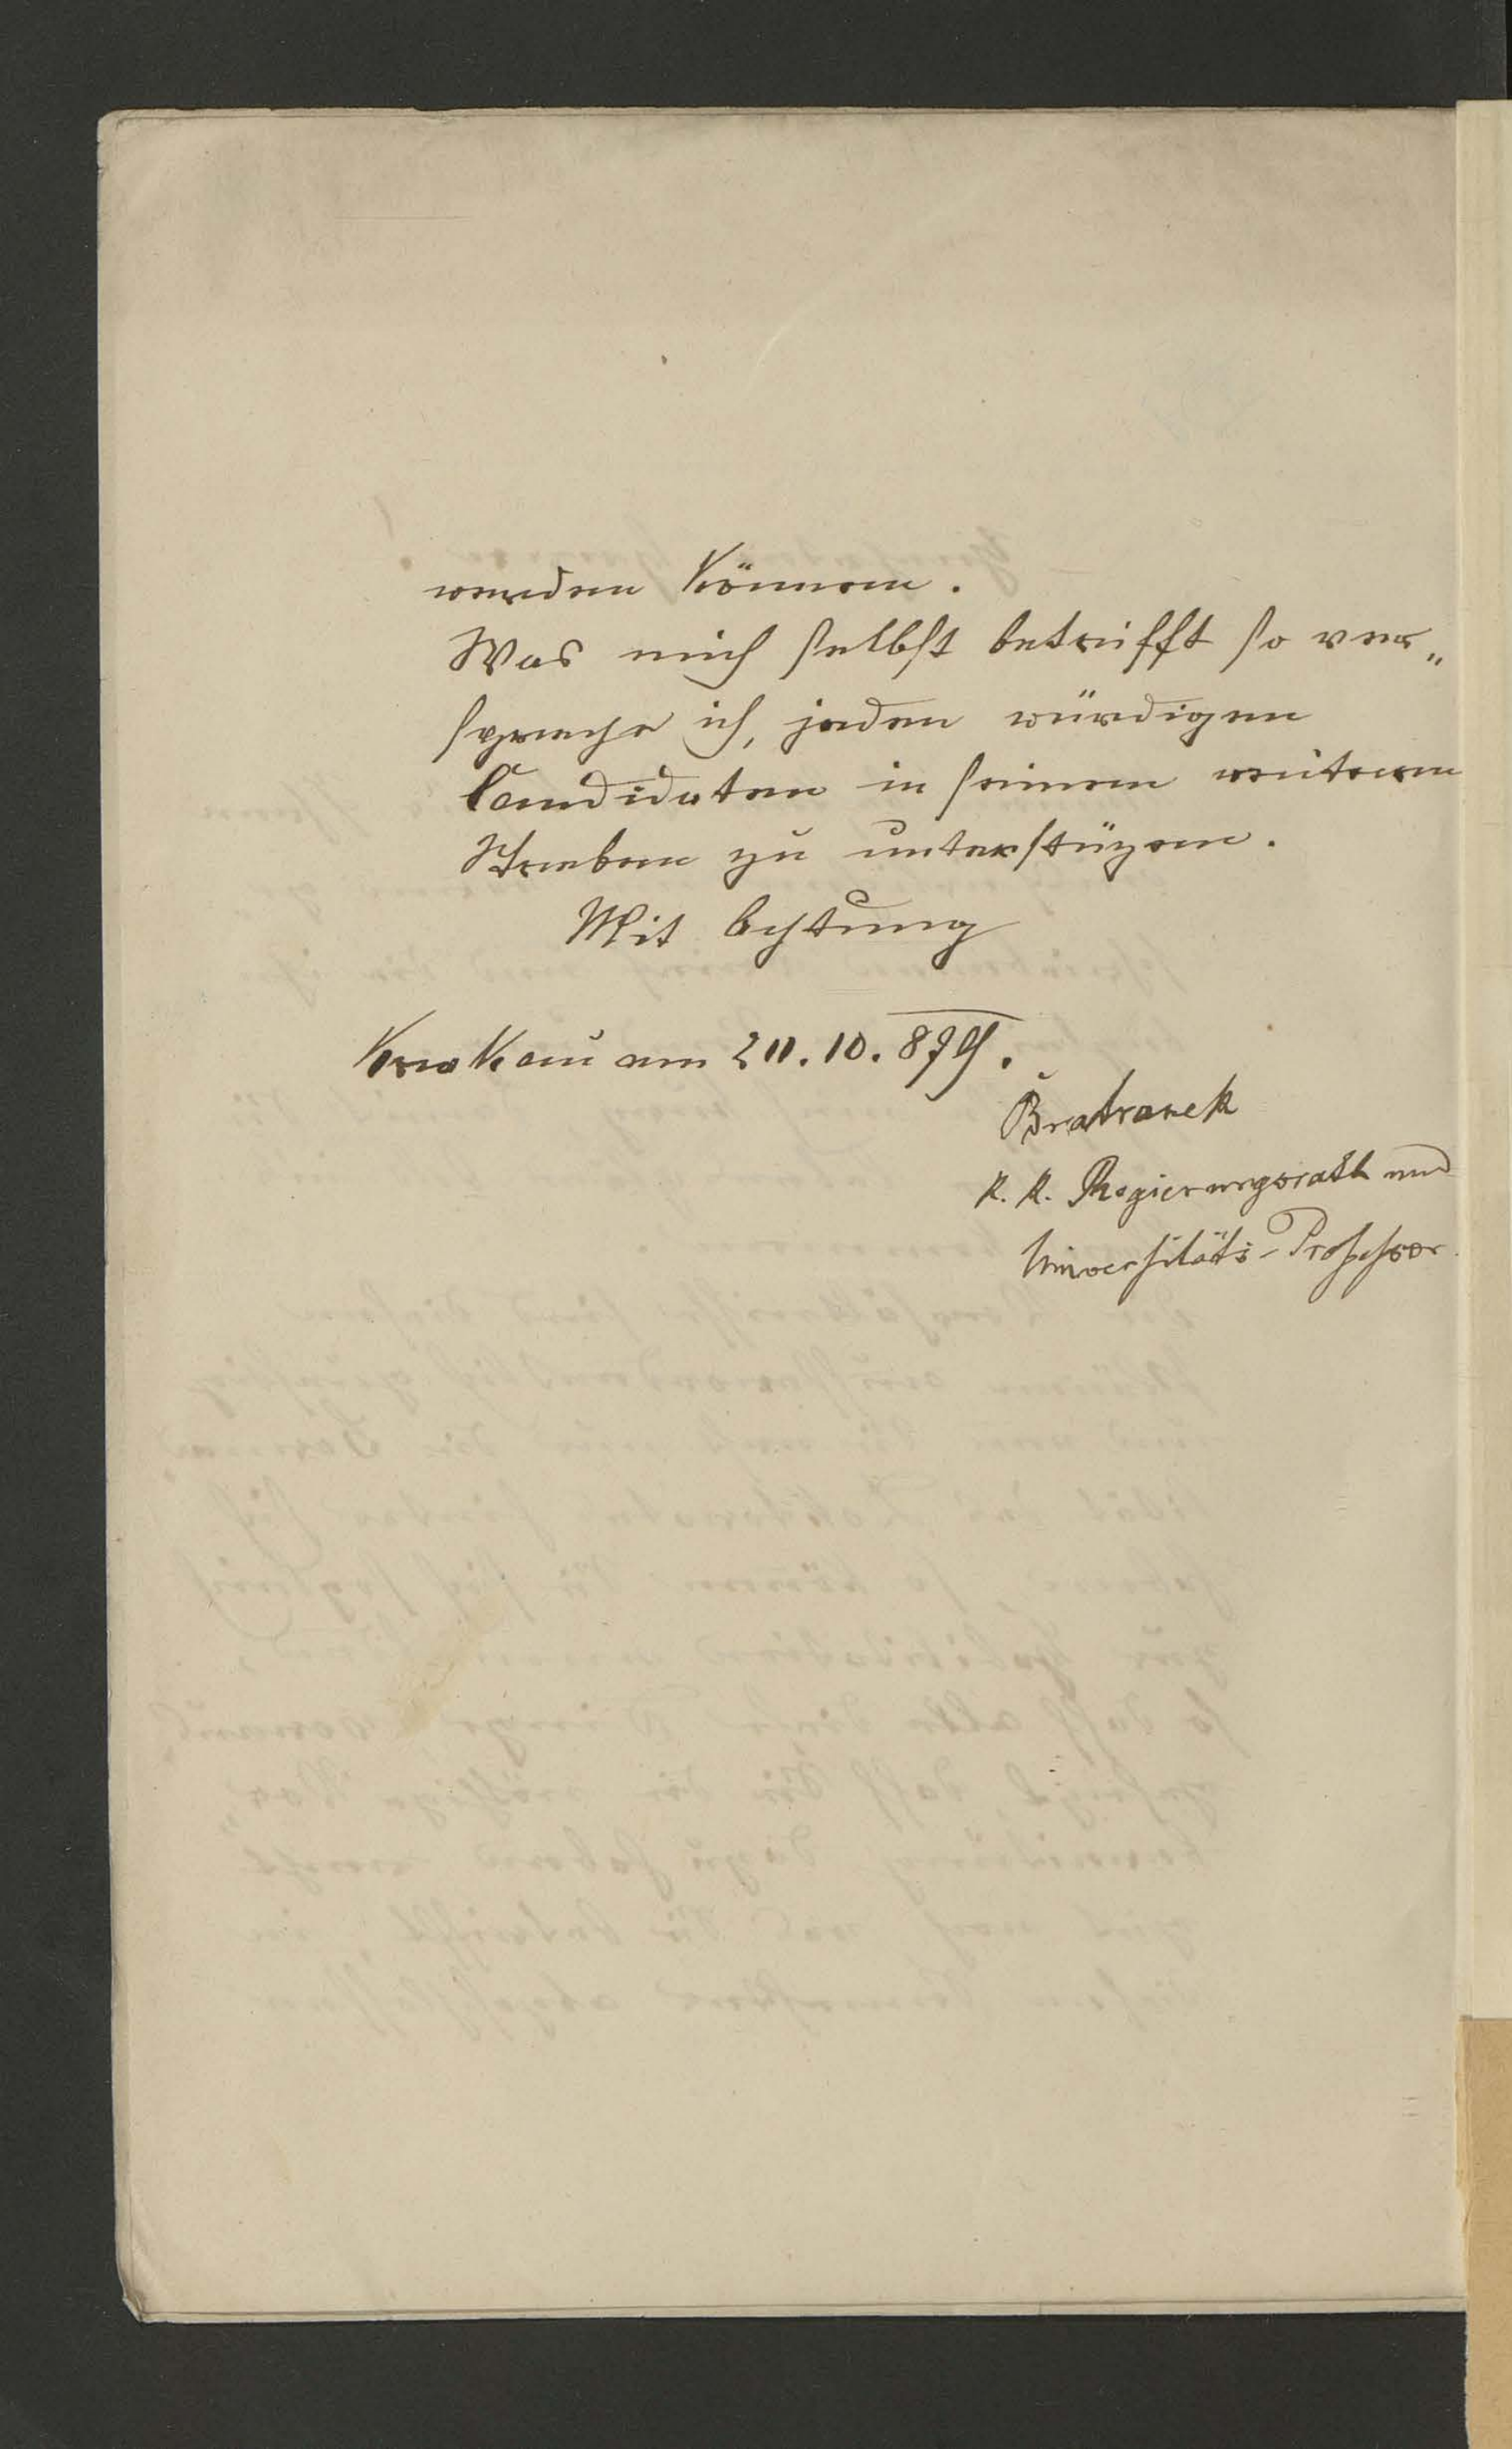 werden können.
Was mich selbst betrifft so ver„
spreche ich, jeden würdigen
Candidaten in seinem weiteren
Streben zu unterstüzen.
Mit Achtung
Krakau am 20.10.879.
Bratranek
k. k. Regierungsrath und
Universitäts-Professor